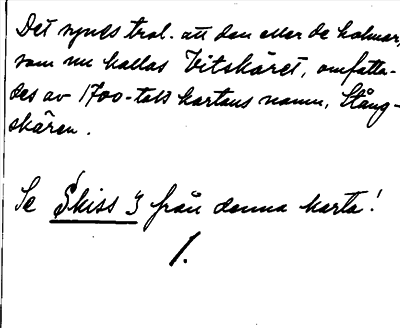 Det synes trol. att den eller de holmar,
som nu kallas Vitskäret, omfatta-
des av 1700-tals kartans namn, Stång-
skären.
Se Skiss 3 från denna karta!
1.